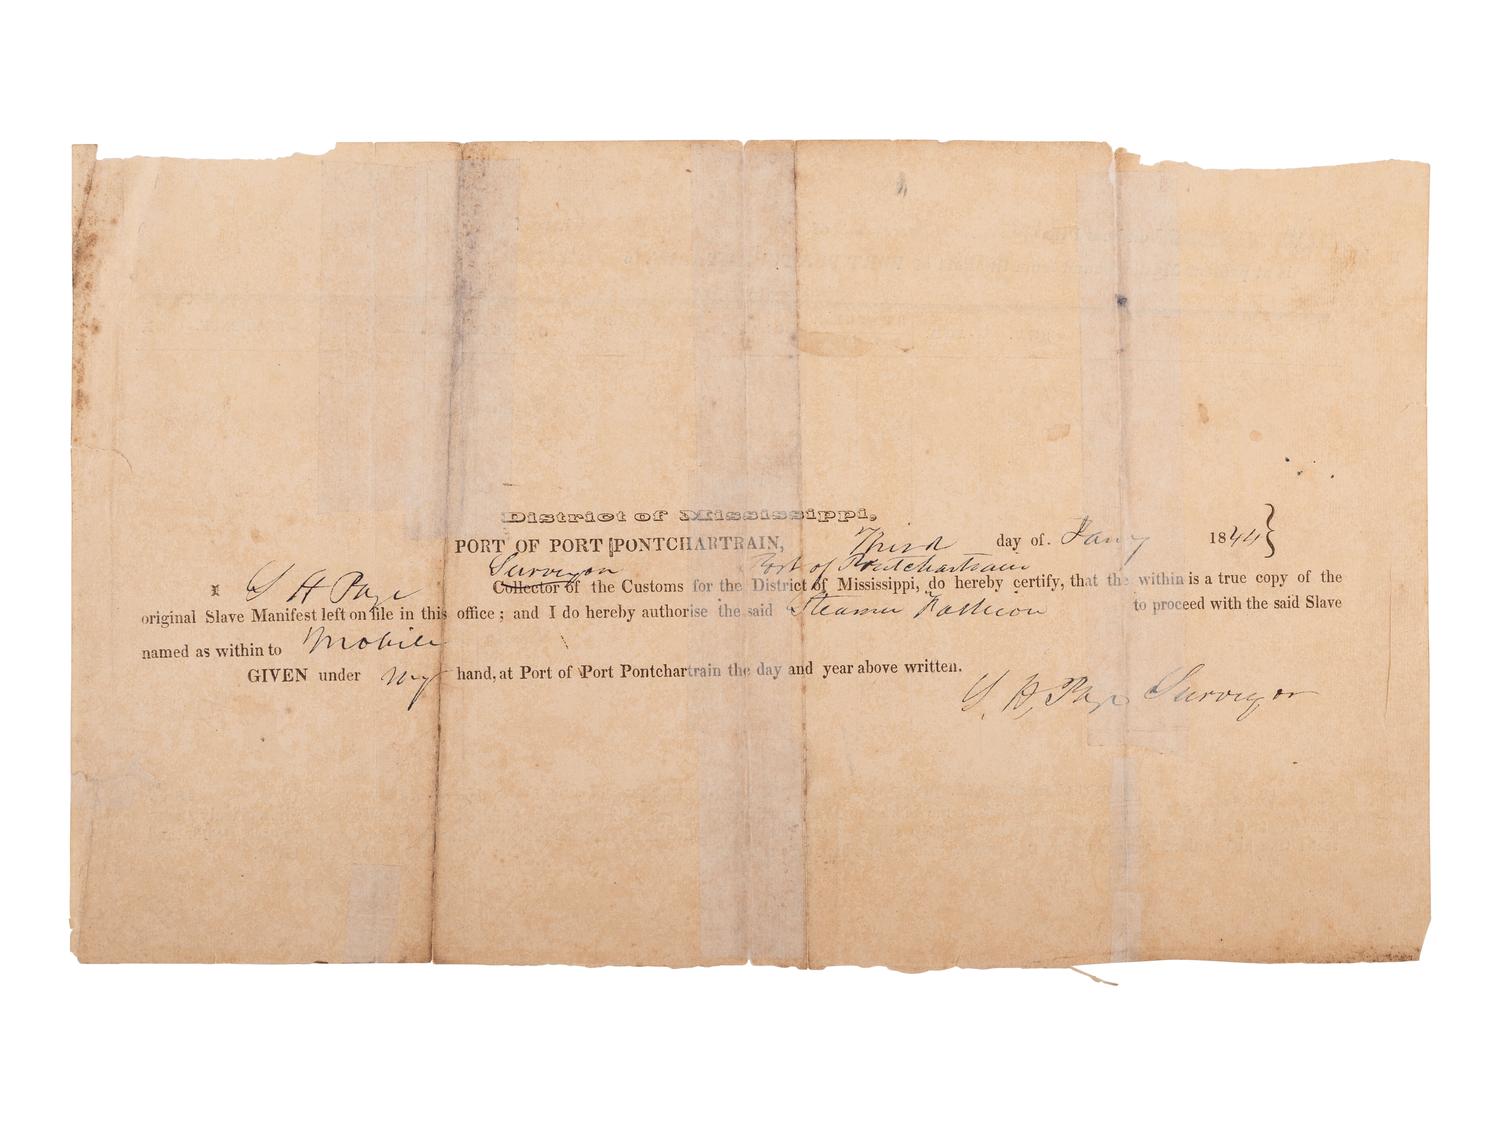 District of Mississippi,
PORT OF PORT PONTCHARTRAIN, Third day of. Jany 1844}
Surveyor Port of Pontchartrain
I S H Page Collector of the Customs for the District of Mississippi, do hereby certify, that the within is a true copy of the
original Slave Manifest left on file in this office; and I do hereby authorise the said Steamer Fashion to proceed with the said Slave
named as within to Mobile
GIVEN under my hand, at Port of Port Pontchartrain the day and year above written.
S. H, Page Surveyor